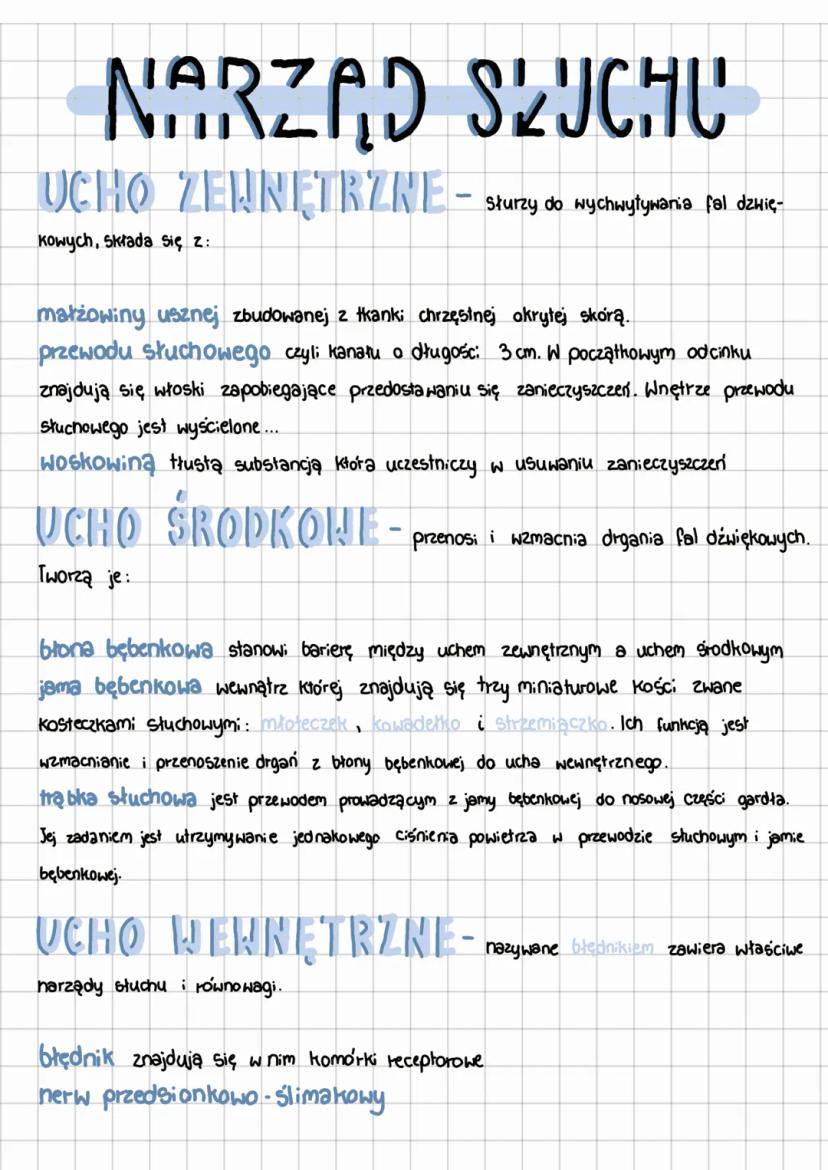 NARZĄD SŁUCHU
UCHO ZEWNĘTRZNE - słurzy do wychwytywania fal dzwię-
kowych, składa się z:
małżowiny usznej zbudowanej z tkanki chrzęstnej okrytej skórą.
przewodu słuchowego czyli kanału o długości: 3 cm. W początkowym odcinku
znajdują się włoski zapobiegające przedostawaniu się zanieczyszczeń. Wnętrze przewodu
słuchowego jest wyścielone...
woskowiną tłustą substancją która uczestniczy w usuwaniu zanieczyszczeń
UCHO ŚRODKOWE - przenosi i wzmacnia drgania fal dźwiękowych.
Tworzą je:
błona bębenkowa stanowi barierę między uchem zewnętrznym a uchem środkowym
jama bębenkowa wewnątrz której znajdują się trzy miniaturowe kości zwane
kosteczkami słuchowymi: młoteczek, kowadełko i strzemiączko. Ich funkcją jest
wzmacnianie i przenoszenie drgań z błony bębenkowej do ucha wewnętrznego.
trąbka słuchowa jest przewodem prowadzącym z jamy bębenkowej do nosowej części gardła.
Jej zadaniem jest utrzymywanie jednakowego ciśnienia powietrza w przewodzie słuchowym i jamie
bębenkowej.
UCHO WEWNĘTRZNE - nazywane błędnikiem zawiera właściwe
narządy słuchu i równowagi.
błędnik znajdują się w nim komórki receptorowe
nerw przedsionkowo - ślimakowy